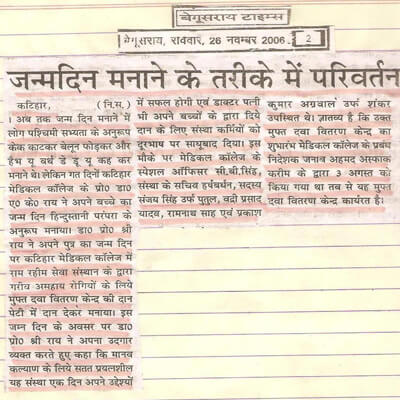 बेगूसराय टाइम्स
बेगूसराय, राववार, 26 नवम्बर 2006. 2
जन्मदिन मनाने के तरीके में परिवर्तन
कटिहार, (नि.स.)
। अब तक जन्म दिन मनाने में
लोग पश्चिमी सभ्यता के अनुरूप
केक काटकर बेलून फोड़कर और
हैभ यू बर्थ डे टू यू कह कर
मनाते थे। लेकिन गत दिनों कटिहार
मेडिकल कॉलेज के प्रो० डा०
ए० के० राय ने अपने बच्चे का
जन्म दिन हिन्दुस्तानी परंपरा के
अनुरूप मनाया। डा० प्रो० श्री
राय ने अपने पुत्र का जन्म दिन
पर कटिहार मेडिकल कॉलेज में
राम रहीम सेवा संस्थान के द्वारा
गरीब असहाय रोगियों के लिये
मुफ्त दवा वितरण केन्द्र को दान
पेटी में दान देकर मनाया। इस
जन्म दिन के अवसर पर डा०
प्रो० श्री राय ने अपना उदगार
व्यक्त करते हुए कहा कि मानव
कल्याण के लिये सतत प्रयत्नशील
यह संस्था एक दिन अपने उद्देश्यों
में सफल होगी एवं डाक्टर पत्नी
भी अपने बच्चों के द्वारा दिये
दान के लिए संस्था कर्मियों को
दूरभाष पर साधुबाद दिया। इस
मौके पर मेडिकल कॉलेज के
स्पेशल ऑफिसर सी.बी.सिंह,
संस्था के सचिव हर्षबर्धन, सदस्य
संजय सिंह उर्फ पुतुल, वद्री प्रसाद
यादव, रामनाथ साह एवं प्रकाश
कुमार अग्रवाल उर्फ शंकर
उपस्थित थे। ज्ञातव्य है कि उक्त
मुफ्त दवा वितरण केन्द्र का
शुभारंभ मेडिकल कॉलेज के प्रबंध
निदेशक जनाव अहमद अस्फाक
करीम के द्वारा 3 अगस्त को
किया गया था तब से यह मुफ्त
दवा वितरण केन्द्र कार्यरत है।